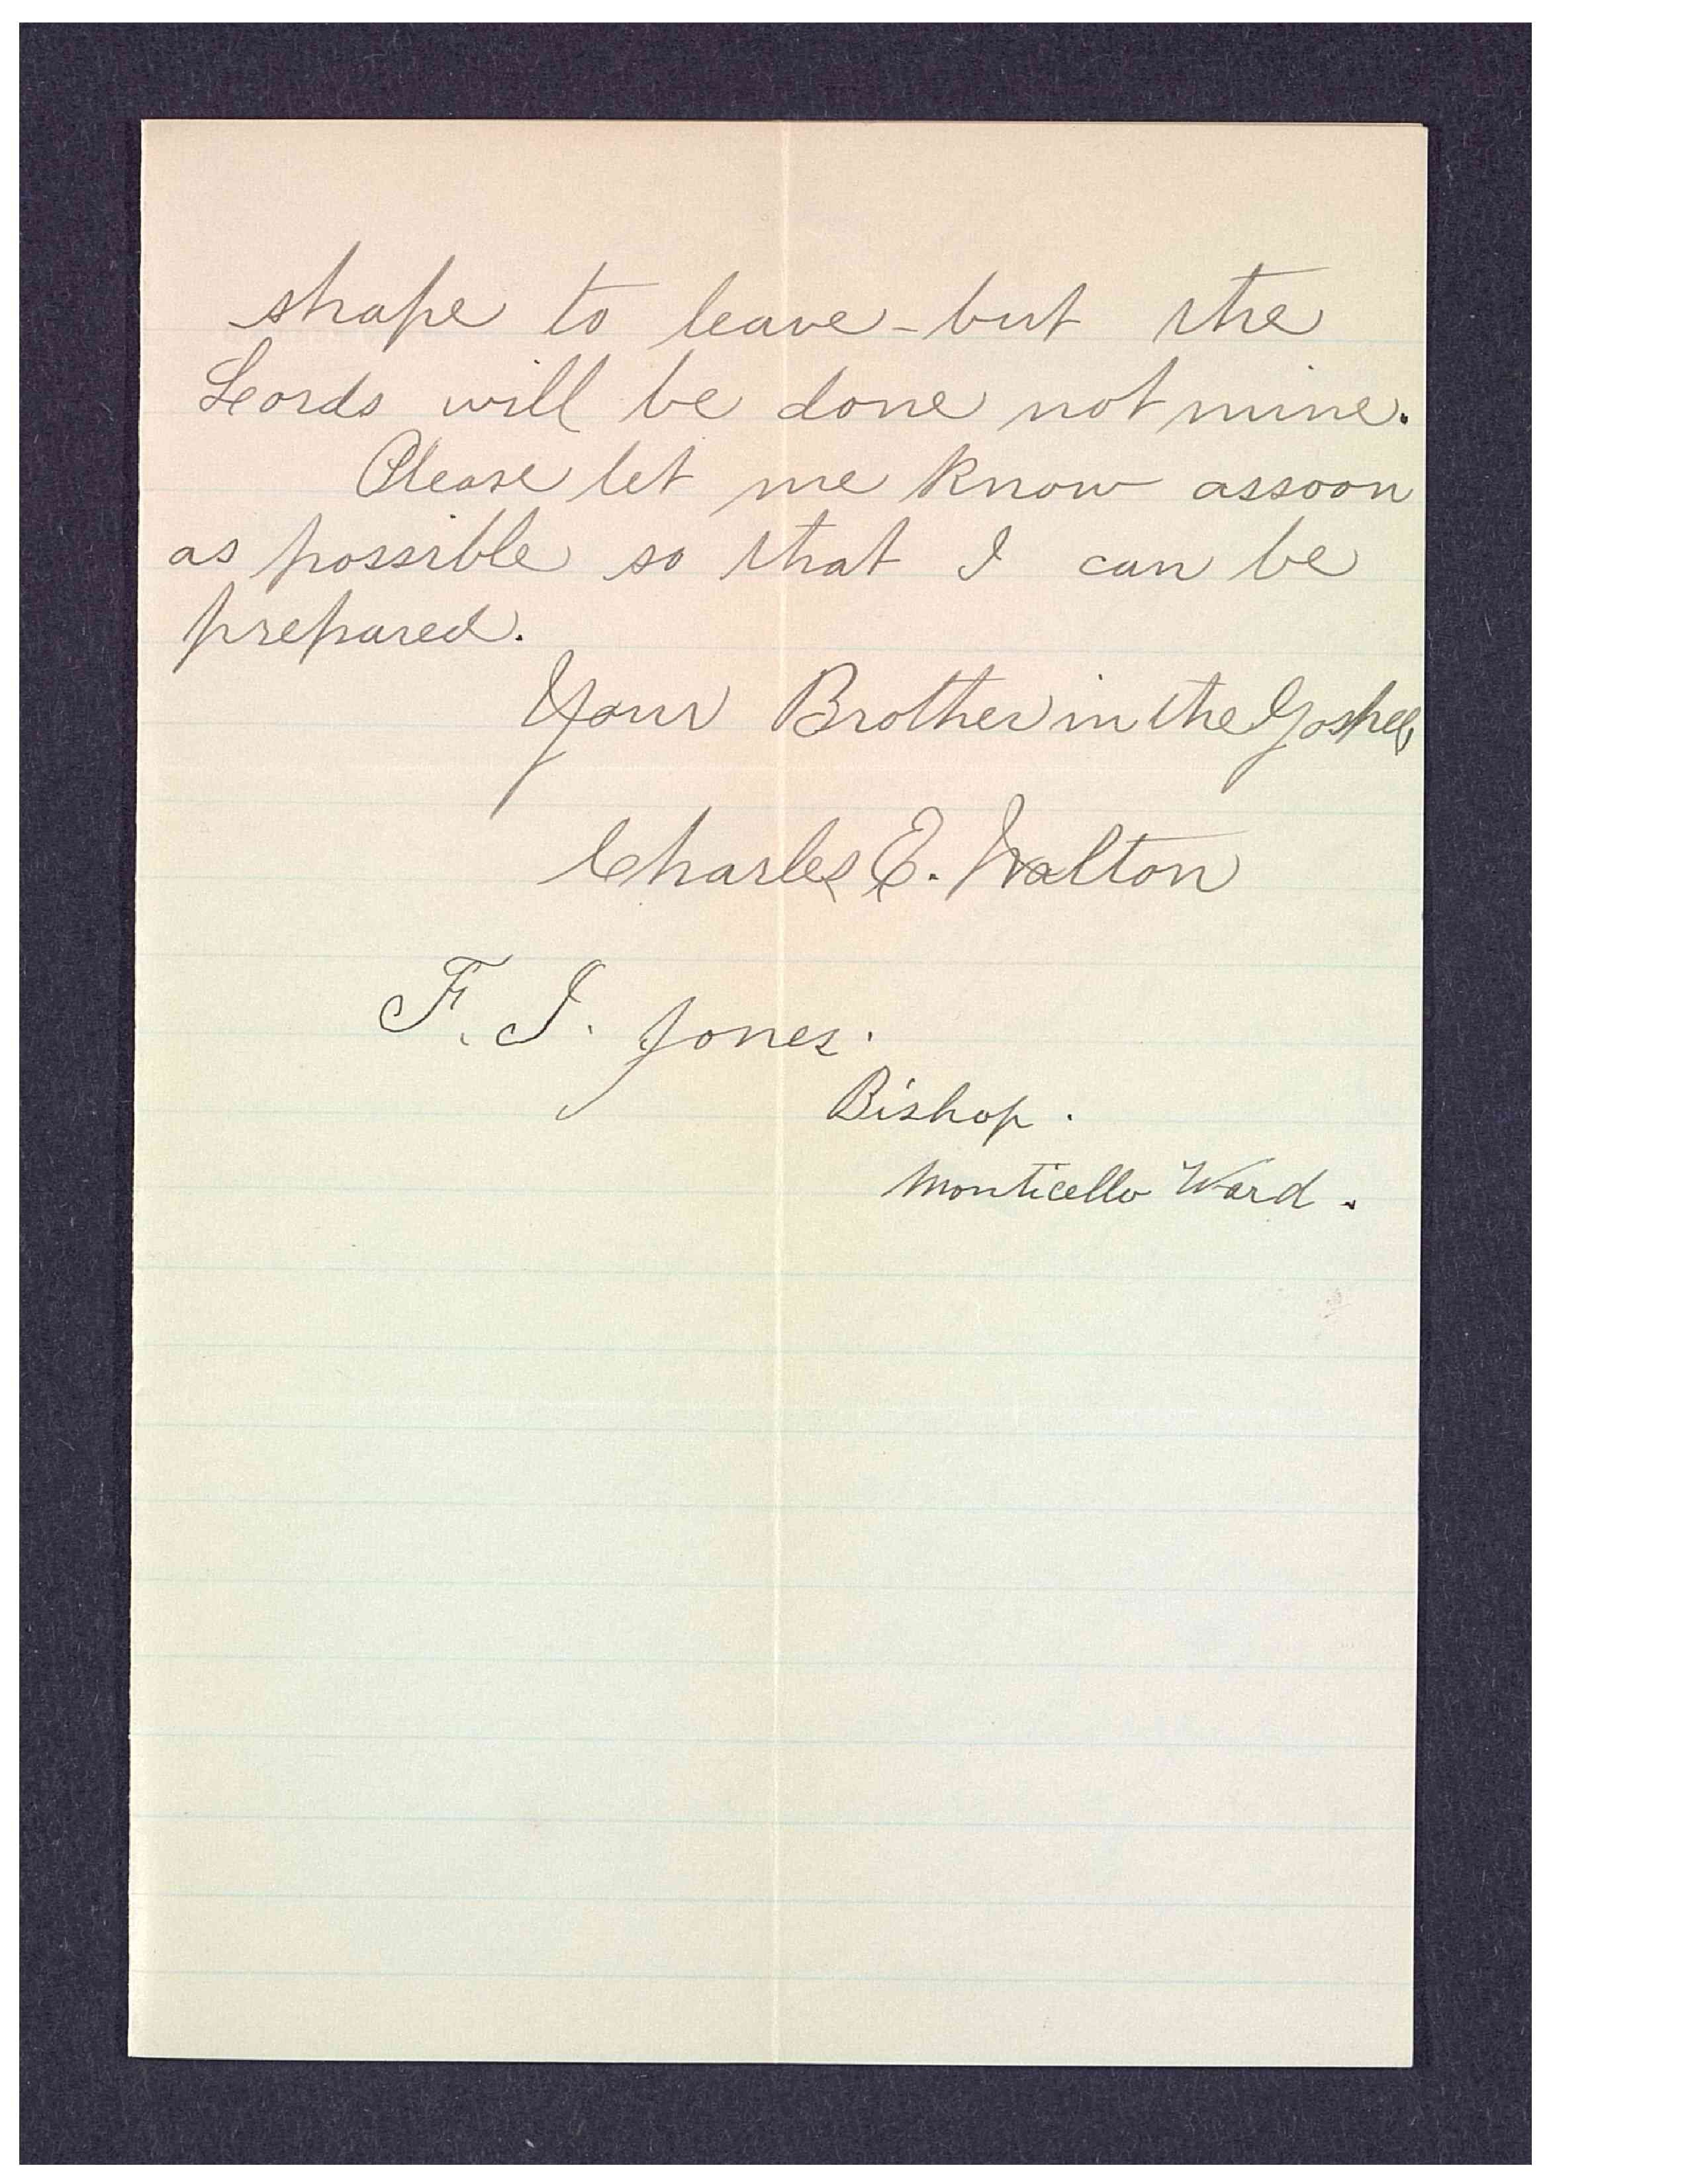 shape to leave - but the
Lords will be done not mine.
Please let me know assoon
as possible so that I can be
prepared.
Your Brother in the Gospel,
Charles E. Walton
F. I. Jones.
Bishop.
Monticello Ward.